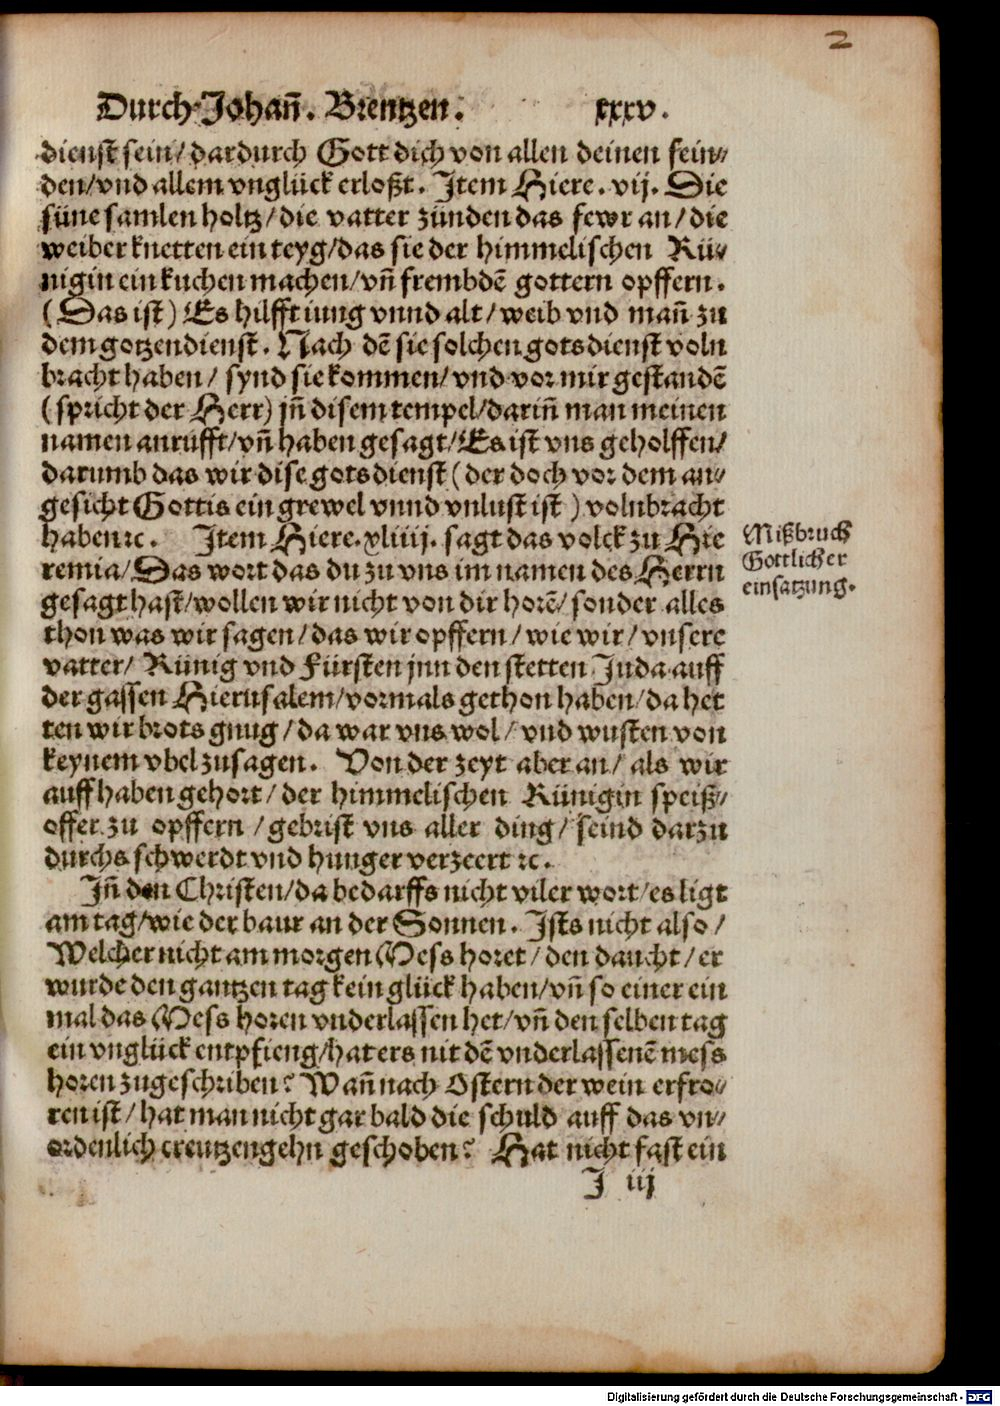 2
Durch Johañ. Brentzen. xxxv.
dienst sein/ dardurch Gott dich von allen deinen fein⸗
den/ vnd allem vnglück erloßt. Item Hiere. vij. Die
süne samlen holtz/ die vatter zünden das fewr an/ die
weiber knetten ein teyg/ das sie der himmelischen Kü⸗
nigin ein kuchen machen/ vñ frembdē gottern opffern.
(Das ist) Es hilfft iung vnnd alt/ weib vnd mañ zu
dem gotzendienst. Nach dē sie solchen gots dienst voln
bracht haben/ synd sie kommen/ vnd vor mir gestandē
(spricht der Herr) jñ disem tempel/ dariñ man meinen
namen anrüfft/ vñ haben gesagt/ Es ist vns geholffen/
darumb das wir dise gots dienst (der doch vor dem an⸗
gesicht Gottis ein grewel vnnd vnlust ist) volnbracht
haben ꝛc. Item Hiere. xliiij. sagt das volck zu Hie
remia/ Das wort das du zu vns im namen des Herrn
gesagt hast/ wollen wir nicht von dir horē/ sonder alles
thon was wir sagen/ das wir opffern/ wie wir/ vnsere
vatter/ Künig vnd Fürsten jnn den stetten Juda auff
der gassen Hierusalem/ vormals gethon haben/ da het
ten wir brots gnug/ da war vns wol/ vnd wusten von
keynem vbel zusagen. Von der zeyt aber an/ als wir
auff haben gehort/ der himmelischen Künigin speiß⸗
offer zu opffern/ gebrist vns aller ding/ seind darzu
durchs schwerdt vnd hunger verzeert ꝛc.
Jñ den Christen/ da bedarffs nicht viler wort/ es ligt
am tag/ wie der baur an der Sonnen. Ists nicht also/
Welcher nicht am morgen Mess horet/ den daucht/ er
wurde den gantzen tag kein glück haben/ vñ so einer ein
mal das Mess horen vnderlassen het/ vñ den selben tag
ein vnglück entpfieng/ hat ers nit dē vnderlassenē mess
horen zugeschriben? Wañ nach Ostern der wein erfro⸗
ren ist/ hat man nicht gar bald die schuld auff das vn⸗
ordenlich creutzengehn geschoben? Hat nicht fast ein
J iij
Mißbruch
Gottlicher
einsatzung.
Digitalisierung gefördert durch die Deutsche Forschungsgemeinschaft - DFG